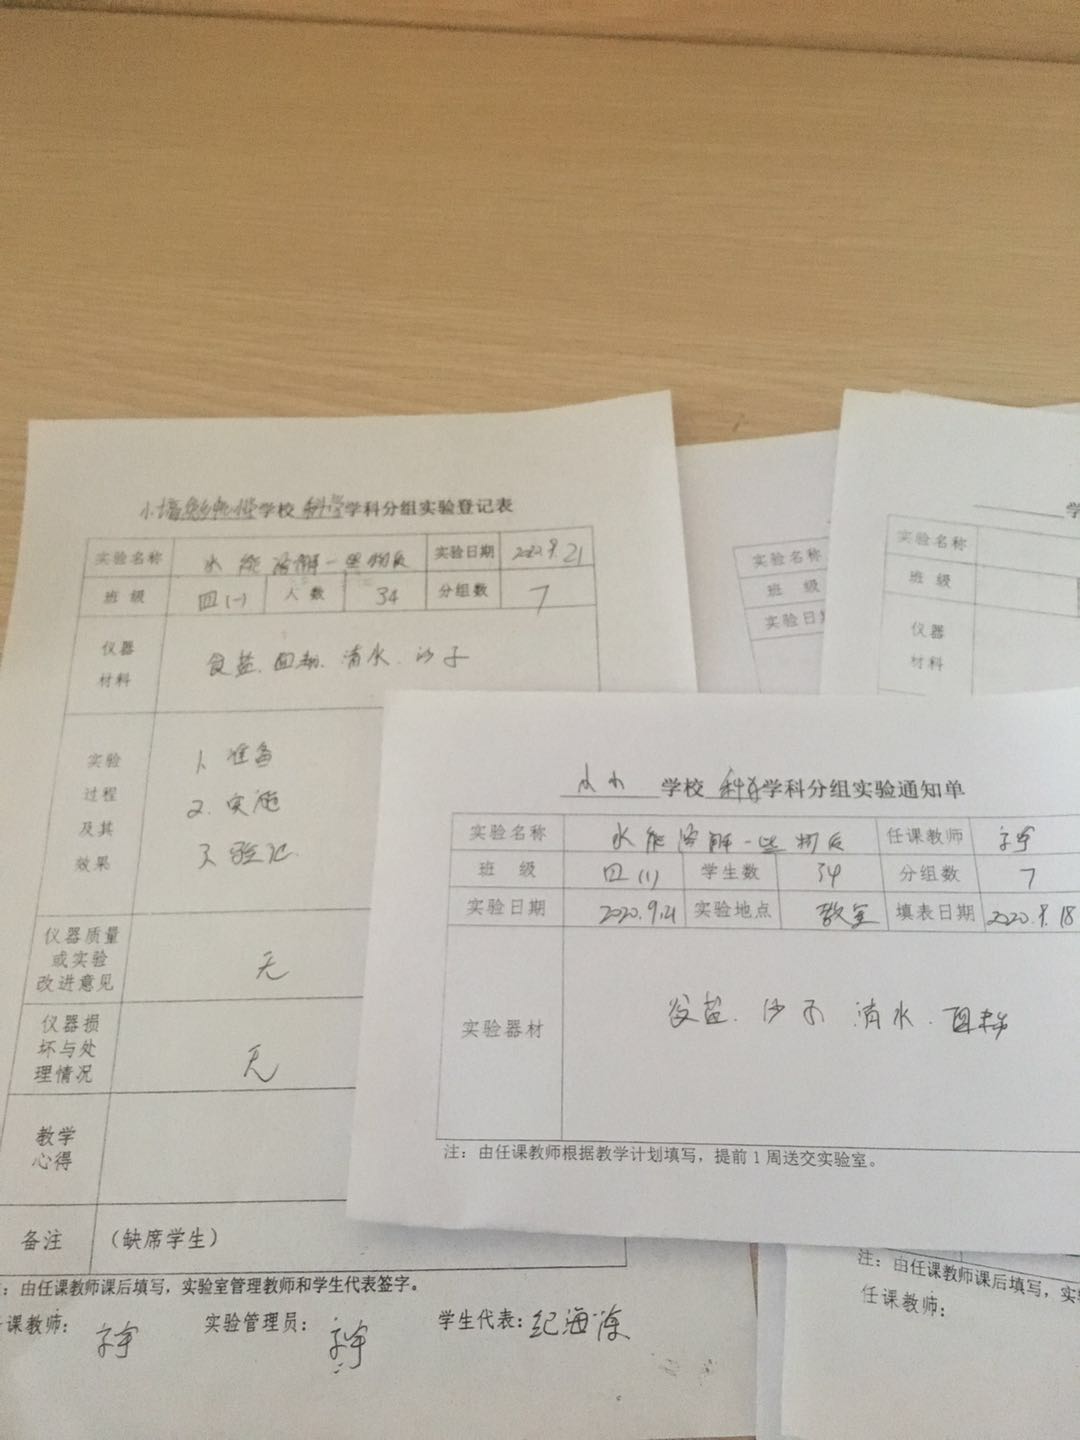 学校 科学 学科分组实验登记表
实验名称 水能溶解一些物质 实验日期 2020.9.21
班 级 四(一) 人 数 34 分组数 7
仪器材料 食盐、面粉、清水、沙子
实验过程及其效果
1、准备
2、实施
3、验记
仪器质量或实验改进意见 无
仪器损坏与处理情况 无
教学心得
备注 (缺席学生)
：由任课教师课后填写，实验室管理教师和学生代表签字。
课教师： 实验管理员： 学生代表：纪海
学校 科学 学科分组实验通知单
实验名称 水能溶解一些物质 任课教师
班 级 四(1) 学生数 34 分组数 7
实验日期 2020.9.21 实验地点 教室 填表日期 2020.9.18
实验器材 食盐、沙子 清水、面粉
注：由任课教师根据教学计划填写，提前1周送交实验室。
实验名称
班 级
实验日
学
实验名称
班 级
仪器材料
注：由任课教师课后填写，实
任课教师：